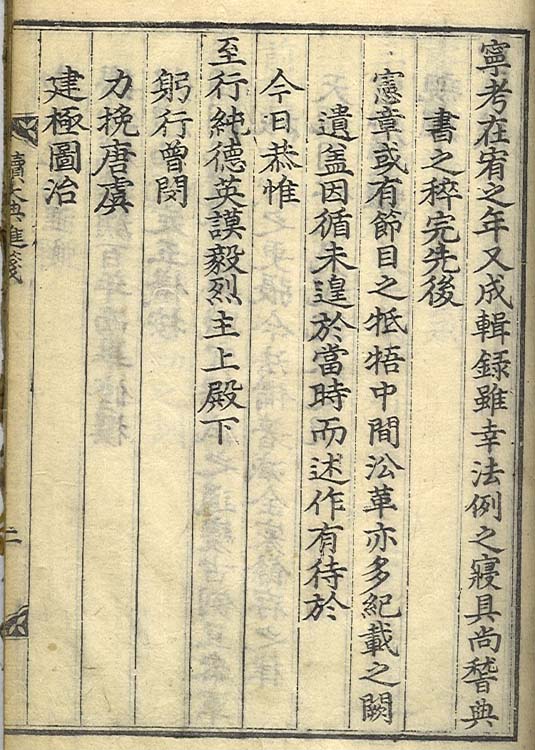 寧考在宥之年又成輯録雖幸法例之寢具尚稽典
書之稡完先後
憲章或有節目之牴牾中間㳂革亦多紀載之闕
遺盖因循未遑於當時而述作有待於
今日恭惟
至行純德英謨毅烈主上殿下
躬行曾閔
力挽唐虞
建極圖治
續大典進箋
二